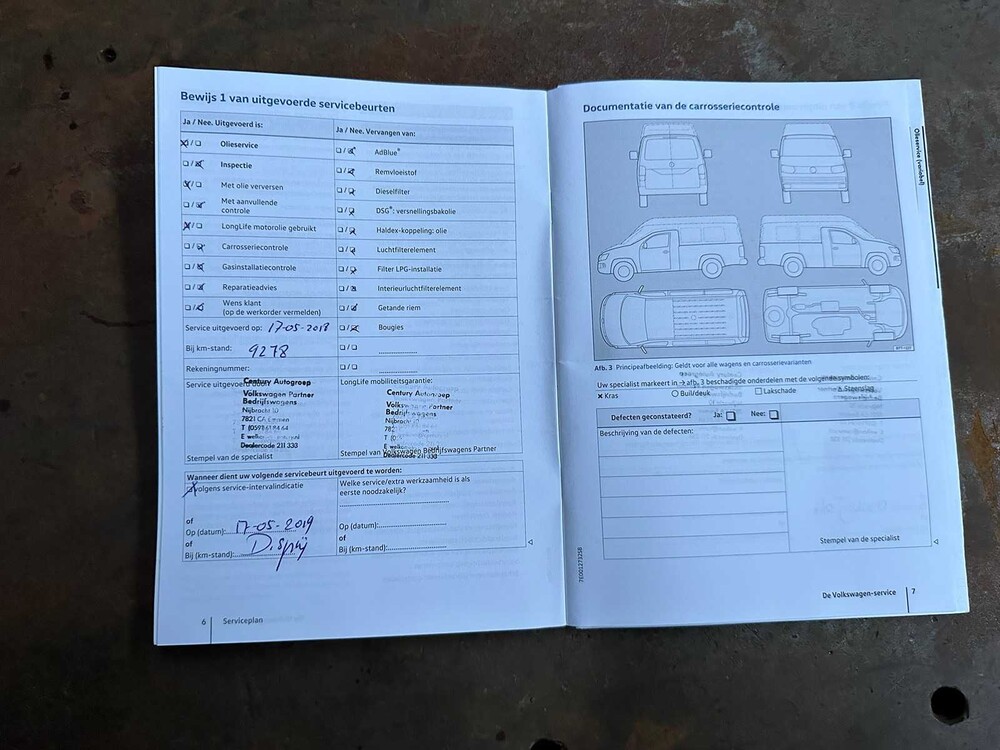 Bewijs 1 van uitgevoerde servicebeurten
Ja / Nee. Uitgevoerd is:
Olieservice
Inspectie
Met olie verversen
Met aanvullende
controle
LongLife motorolie gebruikt
Carrosseriecontrole
Gasinstallatiecontrole
Reparatieadvies
Wens klant
(op de werkorder vermelden)
Ja / Nee. Vervangen van:
AdBlue®
Remvloeistof
Dieselfilter
DSG®: versnellingsbakolie
Haldex-koppeling: olie
Luchtfilterelement
Filter LPG-installatie
Interieurluchtfilterelement
Getande riem
Bougies
Service uitgevoerd op: 17-05-2018
Bij km-stand: 9278
Rekeningnummer:
Service uitgevoerd door:
Century Autogroep
Volkswagen Partner
Bedrijfswagens
Nijbracht
7821 CA Emmen
Dealercode 211 333
Stempel van de specialist
LongLife mobiliteitsgarantie:
Century Autogroep
Volkswagen Partner
Bedrijfswagens
Nijbracht
Dealercode 211 333
Stempel van Volkswagen Bedrijfswagens Partner
Wanneer dient uw volgende servicebeurt uitgevoerd te worden:
volgens service-intervalindicatie
of
Op (datum): 17-05-2019
of
Bij (km-stand):
Welke service/extra werkzaamheid is als
eerste noodzakelijk?
Op (datum):
of
Bij (km-stand):
6 Serviceplan
Documentatie van de carrosseriecontrole
Afb. 3 Principeafbeelding: Geldt voor alle wagens en carrosserievarianten
Uw specialist markeert in → afb. 3 beschadigde onderdelen met de volgende symbolen:
Kras Buil/deuk Lakschade Steenslag
Defecten geconstateerd? Ja: Nee:
Beschrijving van de defecten:
Stempel van de specialist
De Volkswagen-service 7
Olieservice (variabel)
7E001273258